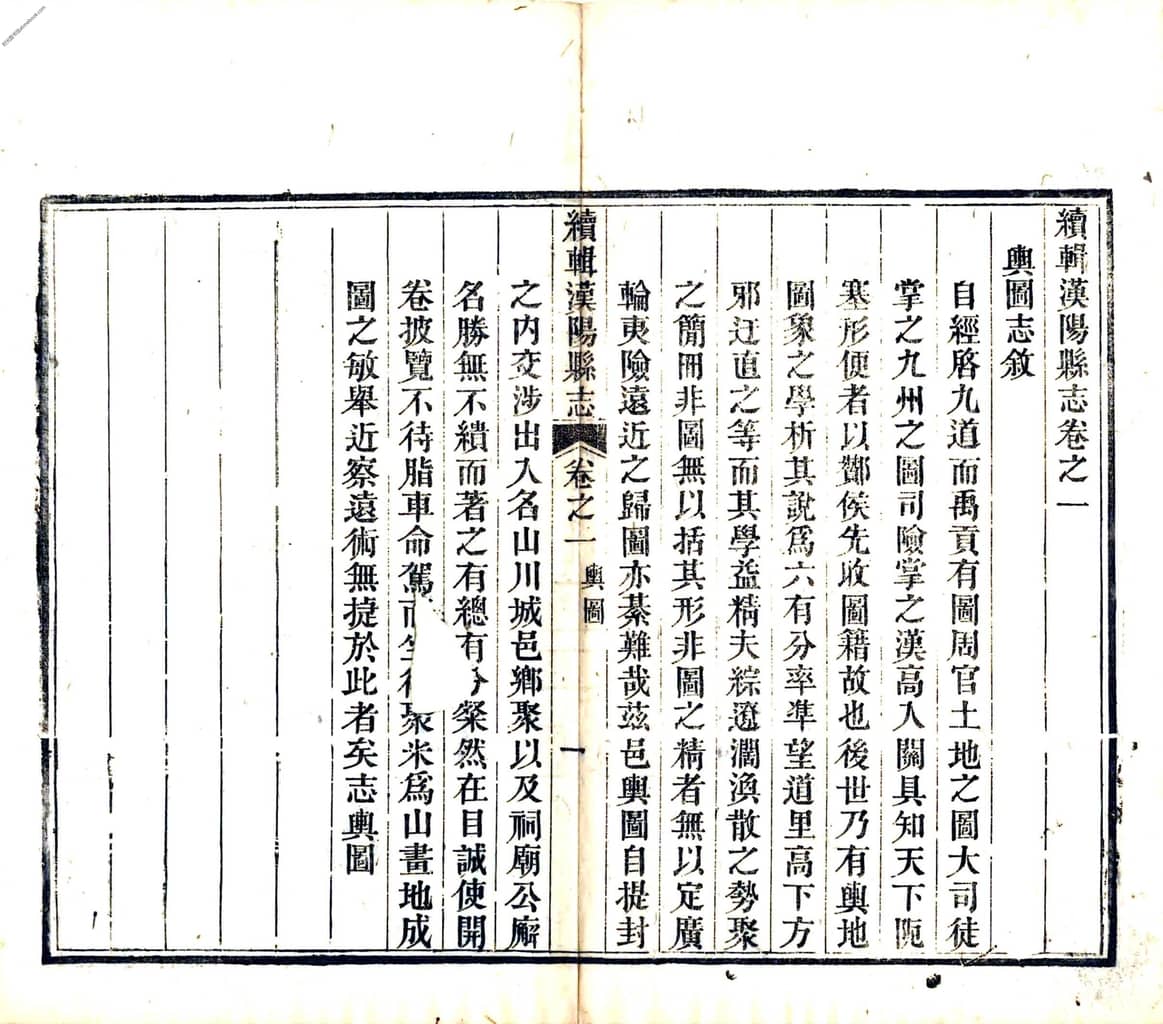 續輯漢陽縣志卷之一
輿圖志敘
自經啓九道而禹貢有圖周官土地之圖大司徒
掌之九州之圖司險掌之漢高入關具知天下阨
塞形便者以酇侯先收圖籍故也後世乃有輿地
圖象之學析其說爲六有分率準望道里高下方
邪迂直之等而其學益精夫綜遼濶渙散之勢聚
之簡冊非圖無以括其形非圖之精者無以定廣
輪夷險遠近之歸圖亦綦難哉茲邑輿圖自提封
續輯漢陽縣志 卷之一 輿圖 一
之內交涉出入名山川城邑鄉聚以及祠廟公廨
名勝無不繢而著之有總有分粲然在目誠使開
卷披覽不待脂車命駕而聚米爲山畫地成
圖之敏舉近察遠術無捷於此者矣志輿圖